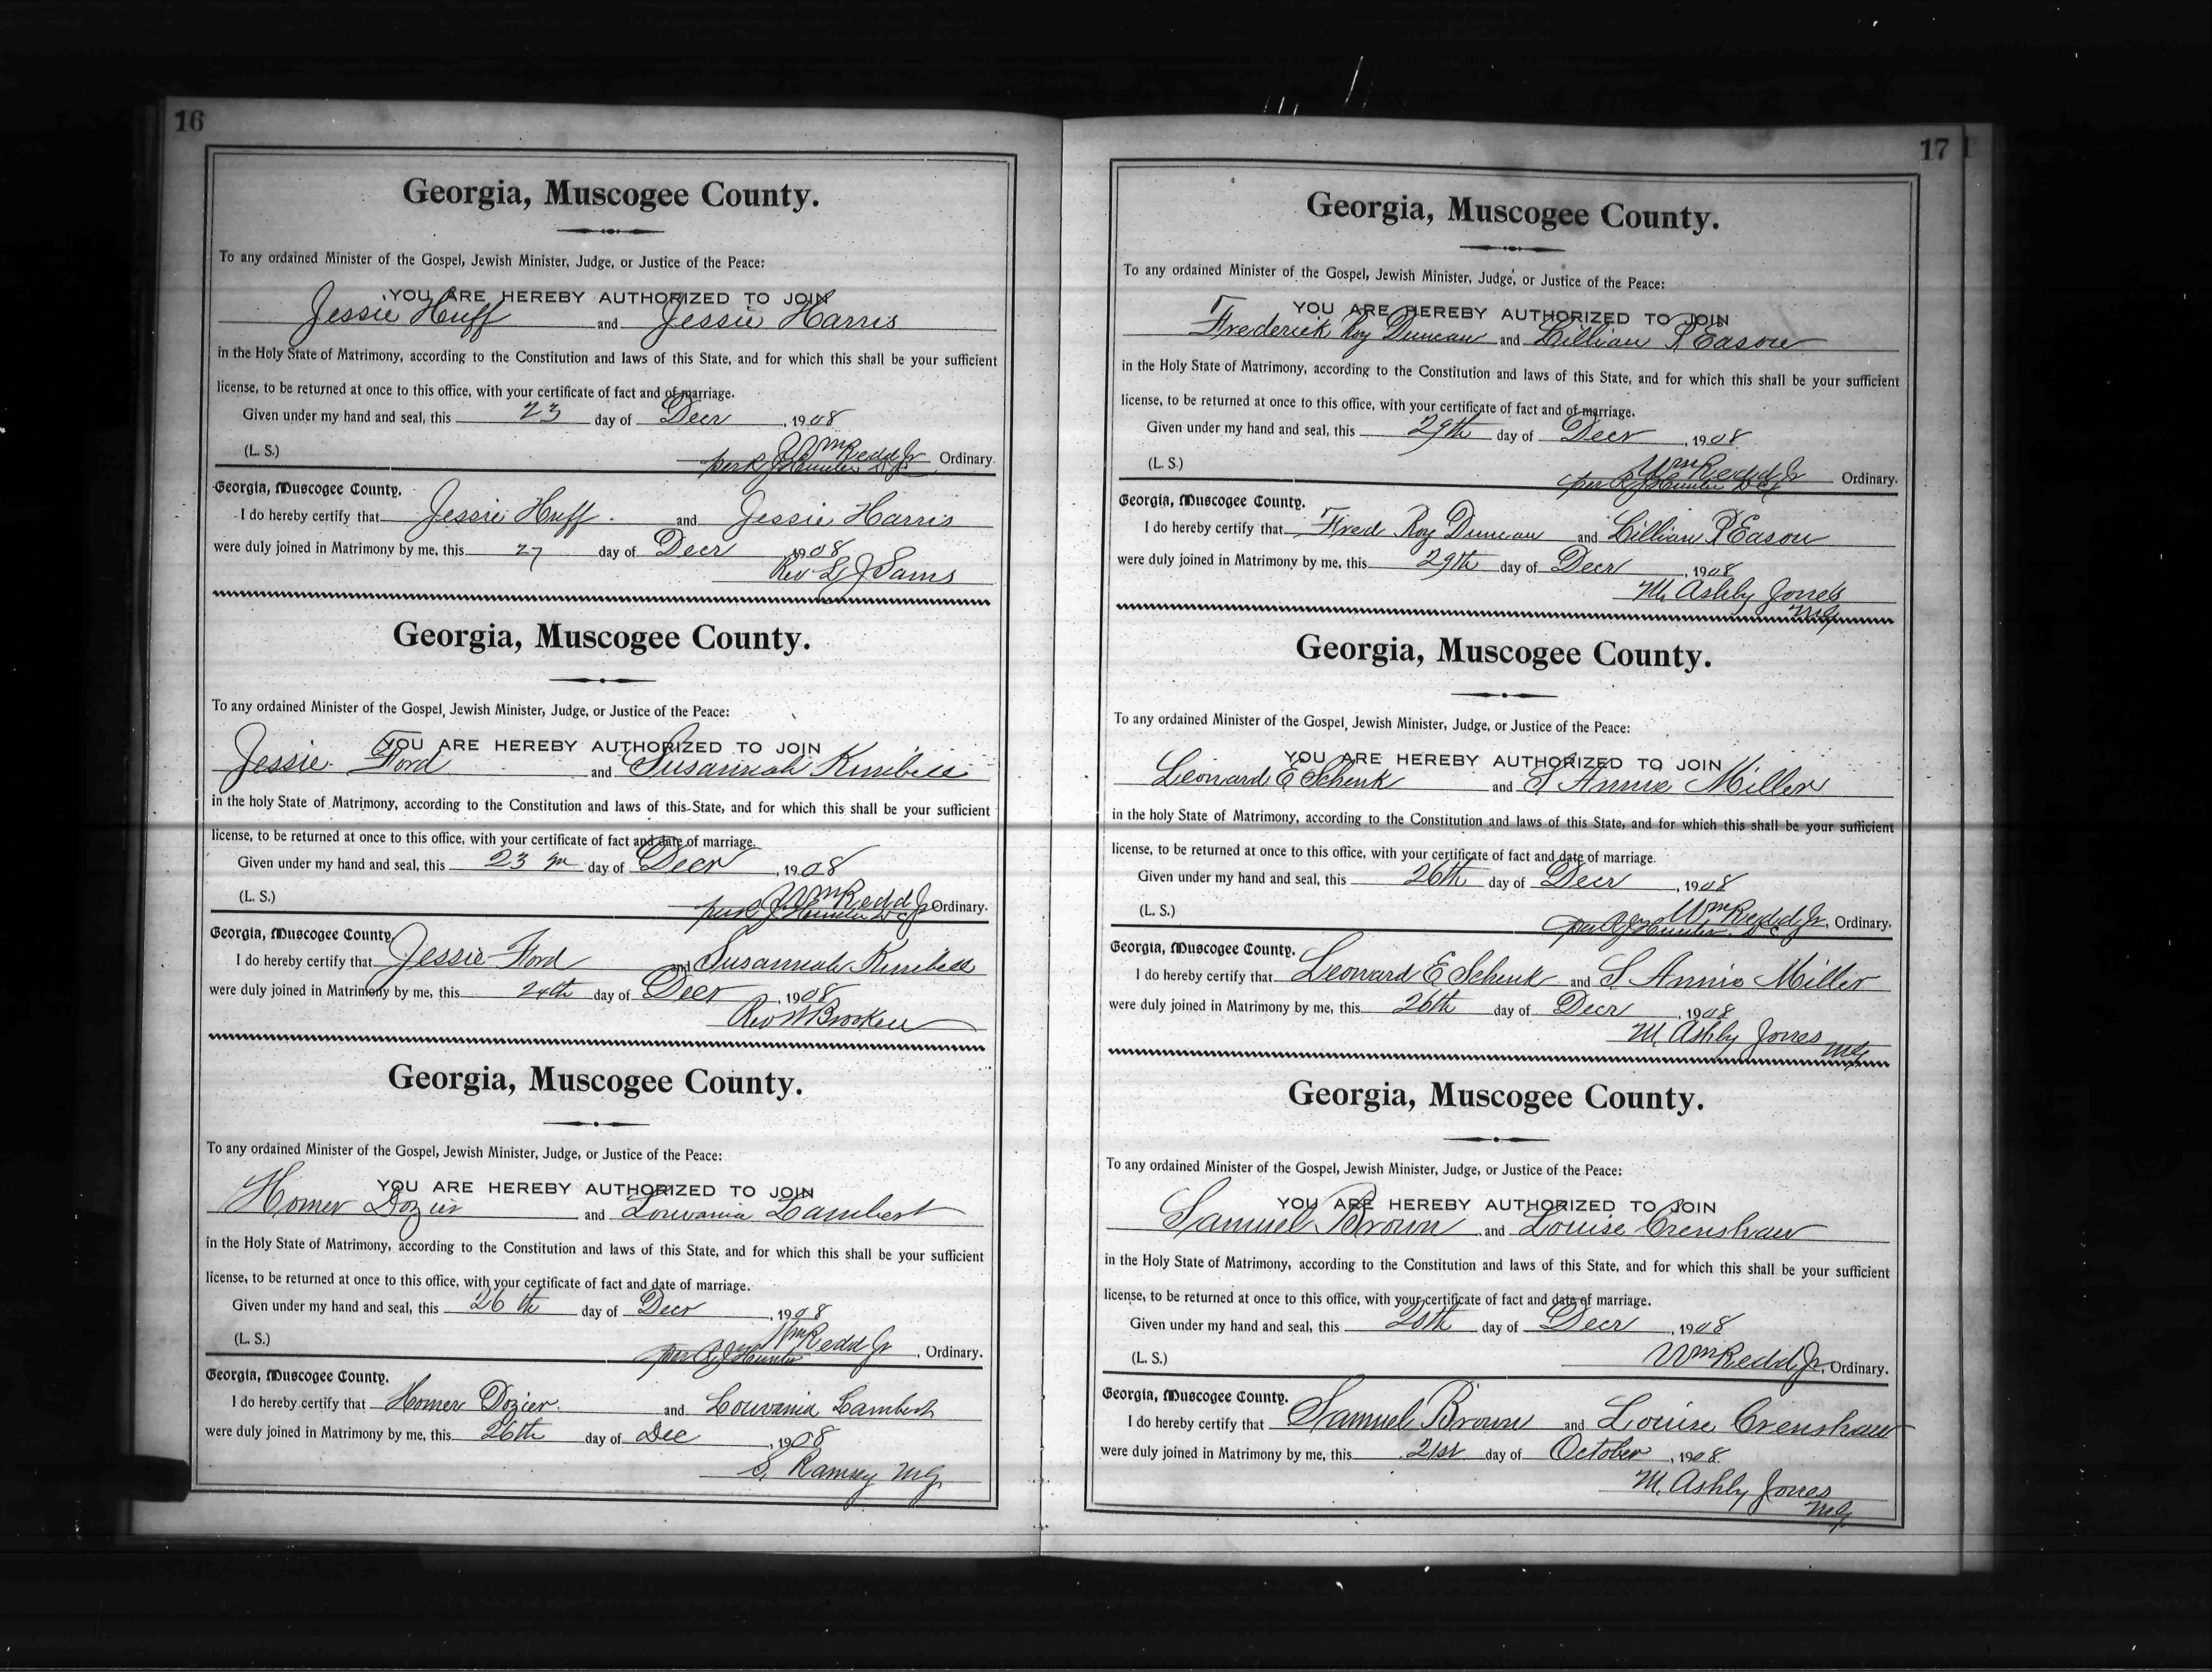 16
Georgia, Muscogee County.
To any ordained Minister of the Gospel, Jewish Minister, Judge, or Justice of the Peace:
YOU ARE HEREBY AUTHORIZED TO JOIN
Jessie Huff and Jessie Harris
in the Holy State of Matrimony, according to the Constitution and laws of this State, and for which this shall be your sufficient
license, to be returned at once to this office, with your certificate of fact and of marriage.
Given under my hand and seal, this 23 day of Decr , 1908
Wm Redd Jr
(L. S.) per R J Hunter D C , Ordinary.
Georgia, Muscogee County.
I do hereby certify that Jessie Huff. and Jessie Harris
were duly joined in Matrimony by me, this 27 day of Decr 1908
Rev L J Sams
Georgia, Muscogee County.
To any ordained Minister of the Gospel, Jewish Minister, Judge, or Justice of the Peace:
YOU ARE HEREBY AUTHORIZED TO JOIN
Jessie Ford and Susannah
in the holy State of Matrimony, according to the Constitution and laws of this State, and for which this shall be your sufficient
license, to be returned at once to this office, with your certificate of fact and date of marriage.
Given under my hand and seal, this 23 day of Decr , 1908
Wm Redd Jr
(L. S.) per R J Hunter D C Ordinary.
Georgia, Muscogee County
I do hereby certify that Jessie Ford and Susannah
were duly joined in Matrimony by me, this 24th day of Decr , 1908
Rev W
Georgia, Muscogee County.
To any ordained Minister of the Gospel, Jewish Minister, Judge, or Justice of the Peace:
YOU ARE HEREBY AUTHORIZED TO JOIN
Homer Dozier and Louvania Lambert
in the Holy State of Matrimony, according to the Constitution and laws of this State, and for which this shall be your sufficient
license, to be returned at once to this office, with your certificate of fact and date of marriage.
Given under my hand and seal, this 26th day of Decr , 1908
Wm Redd Jr
(L. S.) per R J Hunter , Ordinary.
Georgia, Muscogee County.
I do hereby certify that Homer Dozier. and Louvania Lambert
were duly joined in Matrimony by me, this 26th day of Dec , 1908
S. Ramsey M G.
17
Georgia, Muscogee County.
To any ordained Minister of the Gospel, Jewish Minister, Judge, or Justice of the Peace:
YOU ARE HEREBY AUTHORIZED TO JOIN
Frederick Roy Duncan and Lillian P Eason
in the Holy State of Matrimony, according to the Constitution and laws of this State, and for which this shall be your sufficient
license, to be returned at once to this office, with your certificate of fact and of marriage.
Given under my hand and seal, this 29th day of Decr , 1908
Wm Redd Jr
(L. S.) per R J Hunter D C Ordinary.
Georgia, Muscogee County.
I do hereby certify that Fred Roy Duncan and Lillian P Eason
were duly joined in Matrimony by me, this 29th day of Decr , 1908
M. Ashby Jones
M G
Georgia, Muscogee County.
To any ordained Minister of the Gospel, Jewish Minister, Judge, or Justice of the Peace:
YOU ARE HEREBY AUTHORIZED TO JOIN
Leonard E Schenk and S Annie Miller
in the holy State of Matrimony, according to the Constitution and laws of this State, and for which this shall be your sufficient
license, to be returned at once to this office, with your certificate of fact and date of marriage.
Given under my hand and seal, this 26th day of Decr , 1908
Wm Redd Jr
(L. S.) per R J Hunter D C , Ordinary.
Georgia, Muscogee County.
I do hereby certify that Leonard E Schenk and S Annie Miller
were duly joined in Matrimony by me, this 26th day of Decr , 1908
M. Ashby Jones M G
Georgia, Muscogee County.
To any ordained Minister of the Gospel, Jewish Minister, Judge, or Justice of the Peace:
YOU ARE HEREBY AUTHORIZED TO JOIN
Samuel Brown and Louise Crenshaw
in the Holy State of Matrimony, according to the Constitution and laws of this State, and for which this shall be your sufficient
license, to be returned at once to this office, with your certificate of fact and date of marriage.
Given under my hand and seal, this day of Decr , 1908
(L. S.) Wm Redd Jr, Ordinary.
Georgia, Muscogee County.
I do hereby certify that Samuel Brown and Louise Crenshaw
were duly joined in Matrimony by me, this 21st day of October , 1908
M. Ashby Jones
M G